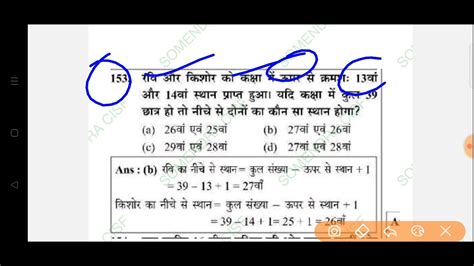 153. रवि और किशोर को कक्षा में ऊपर से क्रमशः 13वां
और 14वां स्थान प्राप्त हुआ। यदि कक्षा में कुल 39
छात्र हो तो नीचे से दोनों का कौन सा स्थान होगा?
(a) 26वां एवं 25वां (b) 27वां एवं 26वां
(c) 29वां एवं 28वां (d) 27वां एवं 28वां
Ans : (b) रवि का नीचे से स्थान = कुल संख्या − ऊपर से स्थान + 1
= 39 − 13 + 1 = 27वाँ
किशोर का नीचे से स्थान = कुल संख्या − ऊपर से स्थान + 1
= 39 − 14 + 1 = 25 + 1 = 26वाँ
A
SOMENDRA CISF